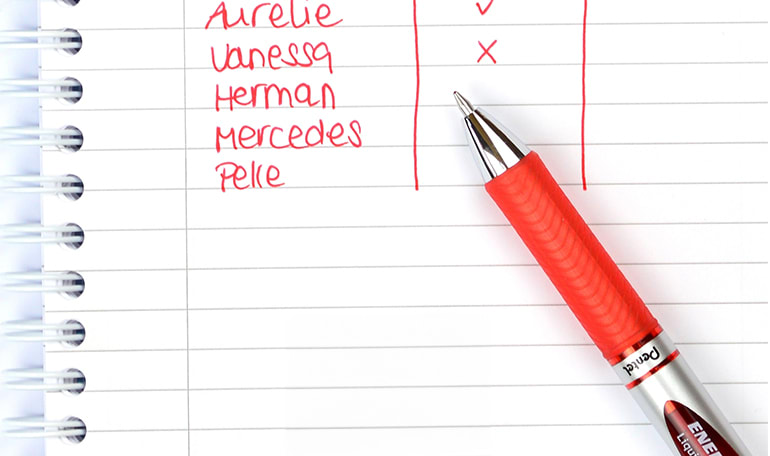 Aurelie ✓
Vanessa X
Herman
Mercedes
Pelle
Pentel
ENER
Liqui